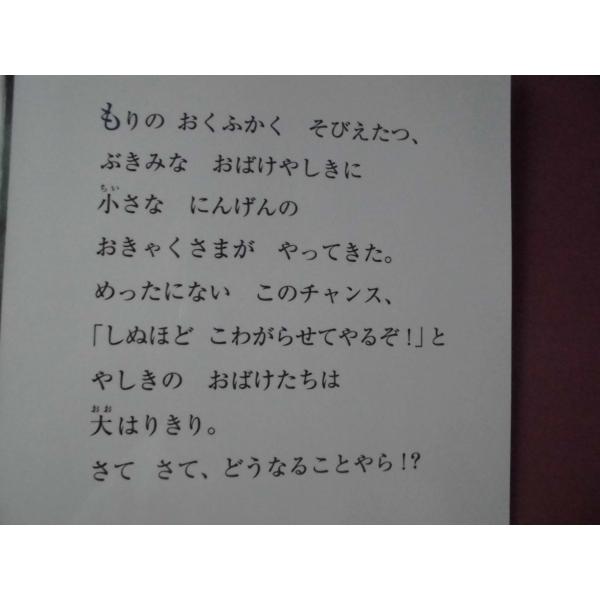 もりの おくふかく そびえたつ、
ぶきみな おばけやしきに
小さな にんげんの
おきゃくさまが やってきた。
めったにない このチャンス、
「しぬほど こわがらせてやるぞ!」と
やしきの おばけたちは
大はりきり。
さて さて、どうなることやら!?